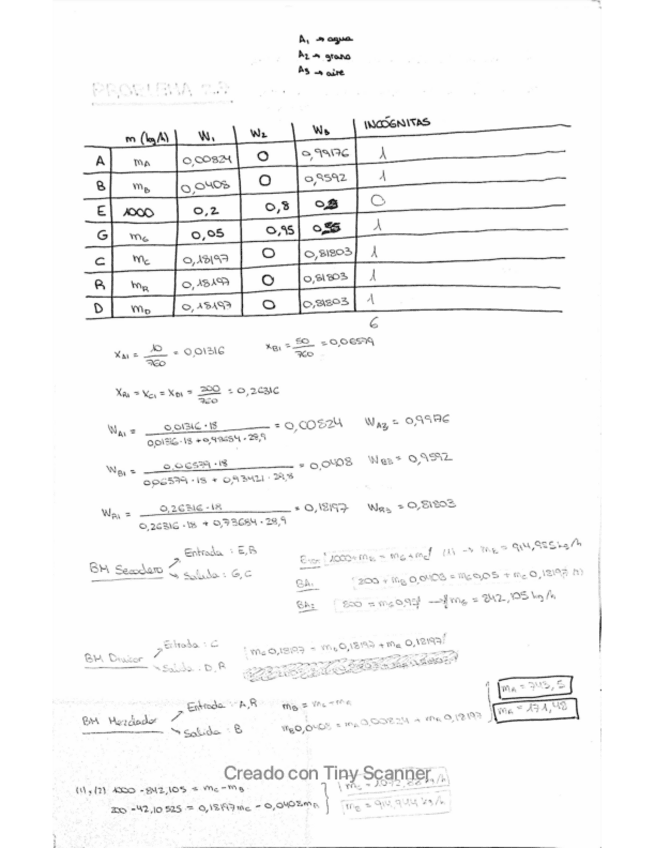 A₁ → agua
A₂ → grano
A₃ → aire
PROBLEMA
m (kg/h) W₁ W₂ W₃ INCÓGNITAS
A m_A 0,00824 0 0,99176 1
B m_B 0,0408 0 0,9592 1
E 1000 0,2 0,8 0
G m_G 0,05 0,95 1
C m_C 0,18197 0 0,81803 1
R m_R 0,18197 0 0,81803 1
D m_D 0,18197 0 0,81803 1
6
X_A1 = 10/760 = 0,01316 X_B1 = 50/760 = 0,06579
X_R1 = X_C1 = X_D1 = 200/760 = 0,26316
W_A1 = 0,01316·18 / 0,01316·18 + 0,98684·28,9 = 0,00824 W_A3 = 0,9976
W_B1 = 0,06579·18 / 0,06579·18 + 0,93421·28,8 = 0,0408 W_B3 = 0,9592
W_R1 = 0,26316·18 / 0,26316·18 + 0,73684·28,9 = 0,18197 W_R3 = 0,81803
BM Secadero Entrada: E,B
Salida: G,C
1000+m_B = m_G+m_C (1) → m_B = 914,955 kg/h
BA₁ 200 + m_B 0,0408 = m_G 0,05 + m_C 0,18197
BA₂ 800 = m_G 0,95 → m_G = 842,105 kg/h
BM Divisor Entrada: C
Salida: D,R
m_C 0,18197 = m_D 0,18197 + m_R 0,18197
BM Mezclador Entrada: A,R
Salida: B
m_B 0,0408 = m_A 0,00824 + m_R 0,18197
= 743,5
= 171,48
(1),(2) 1000 - 842,105 = m_C - m_B
200 - 42,10525 = 0,18197m_C - 0,0408m_B
Creado con Tiny Scanner